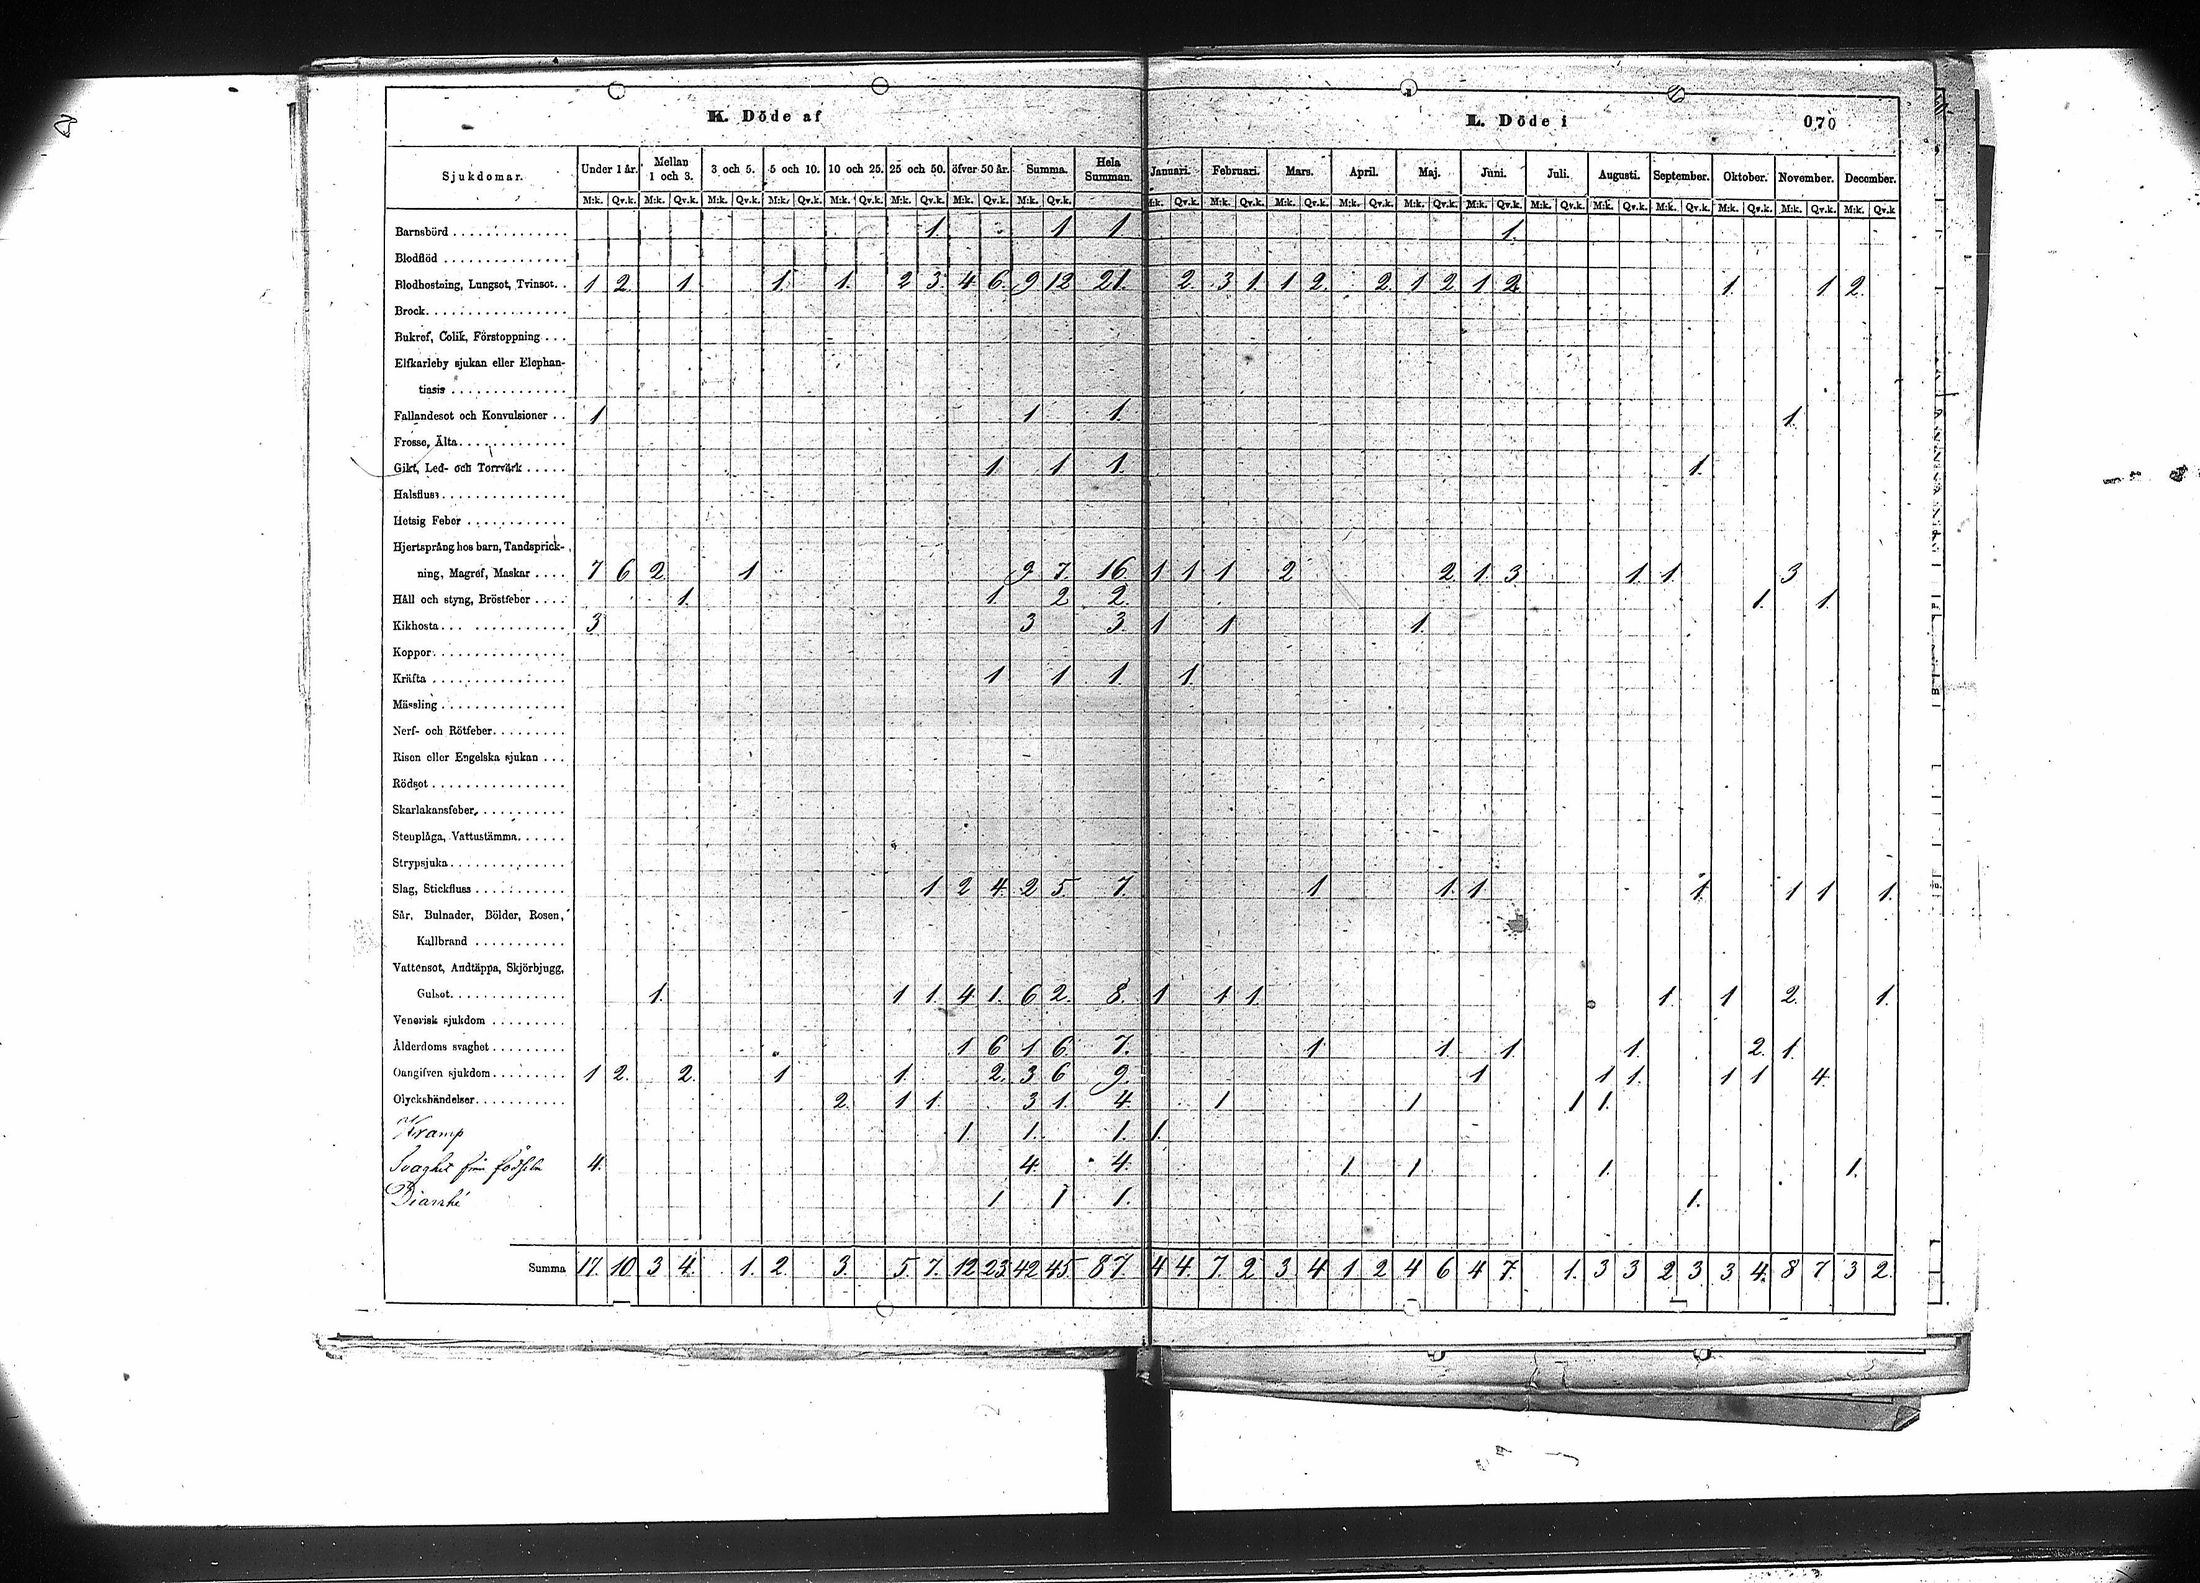 K. Döde af
L. Döde i 070
Sjukdomar. Under 1 år. Mellan 1 och 3. 3 och 5. 5 och 10. 10 och 25. 25 och 50. öfver 50 år. Summa. Hela Summan. Januari. Februari. Mars. April. Maj. Juni. Juli. Augusti. September. Oktober. November. December.
M:k. Qv.k. M:k. Qv.k. M:k. Qv.k. M:k. Qv.k. M:k. Qv.k. M:k. Qv.k. M:k. Qv.k. M:k. Qv.k. M:k. Qv.k. M:k. Qv.k. M:k. Qv.k. M:k. Qv.k. M:k. Qv.k. M:k. Qv.k. M:k. Qv.k. M:k. Qv.k. M:k. Qv.k. M:k. Qv.k. M:k. Qv.k. M:k. Qv.k
Barnsbörd 1 1 1 1.
Blodflöd
Blodhostning, Lungsot, Tvinsot. 1 2 1 1. 1. 2 3. 4 6. 9 12 21. 2. 3 1. 1 2. 2. 1 2 1 2 1. 1 2.
Brock
Bukref, Colik, Förstoppning
Elfkarleby sjukan eller Elephan-
tiasis
Fallandesot och Konvulsioner 1 1 1. 1.
Frosse, Älta
Gikt, Led- och Torrvärk 1 1 1. 1.
Halsfluss
Hetsig Feber
Hjertsprång hos barn, Tandsprick-
ning, Magref, Maskar 7 6 2 1 9 7. 16 1 1 1 2 2 1. 3 1. 1 3
Håll och styng, Bröstfeber 1. 1. 2 2. 1. 1.
Kikhosta 3 3 3. 1 1 1.
Koppor
Kräfta 1 1 1. 1.
Mässling
Nerf- och Rötfeber
Risen eller Engelska sjukan
Rödsot
Skarlakansfeber
Stenplåga, Vattustämma
Strypsjuka
Slag, Stickfluss 1 2 4. 2 5. 7. 1 1. 1 1 1 1 1.
Sår, Bulnader, Bölder, Rosen,
Kallbrand
Vattensot, Andtäppa, Skjörbjugg,
Gulsot 1. 1 1. 4 1. 6 2. 8. 1 1 1 1. 1 2. 1.
Venerisk sjukdom
Ålderdoms svaghet 1 6 1 6. 7. 1 1. 1 1. 2. 1.
Oangifven sjukdom 1 2. 2. 1 1. 2. 3 6 9. 1 1 1. 1 1 4.
Olyckshändelser 2. 1 1. 3 1. 4. 1 1 1 1.
Kramp 1. 1. 1. 1.
Svaghet från födseln 4. 4. 4. 1 1 1. 1.
Diarrhé 1 1 1. 1.
Summa 17. 10. 3 4. 1. 2. 3. 5 7. 12 23. 42 45. 87. 4 4. 7. 2 3 4 1 2 4 6 4 7. 1. 3 3 2 3 3 4. 8 7 3 2.